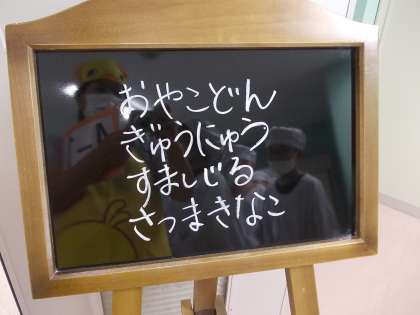 おやこどん
ぎゅうにゅう
すましじる
さつまきなこ